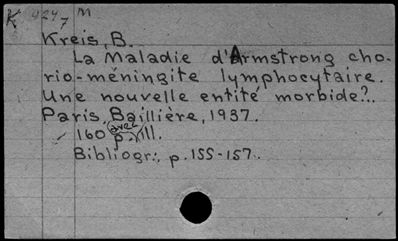 K 4247 M
Kreis, B.
La Maladie d'Armstrong cho-
rio-méningite lymphocytaire.
Une nouvelle entité morbide?..
Paris, Baillière, 1937.
160 p. avec ill.
Bibliogr.: p.155-157.